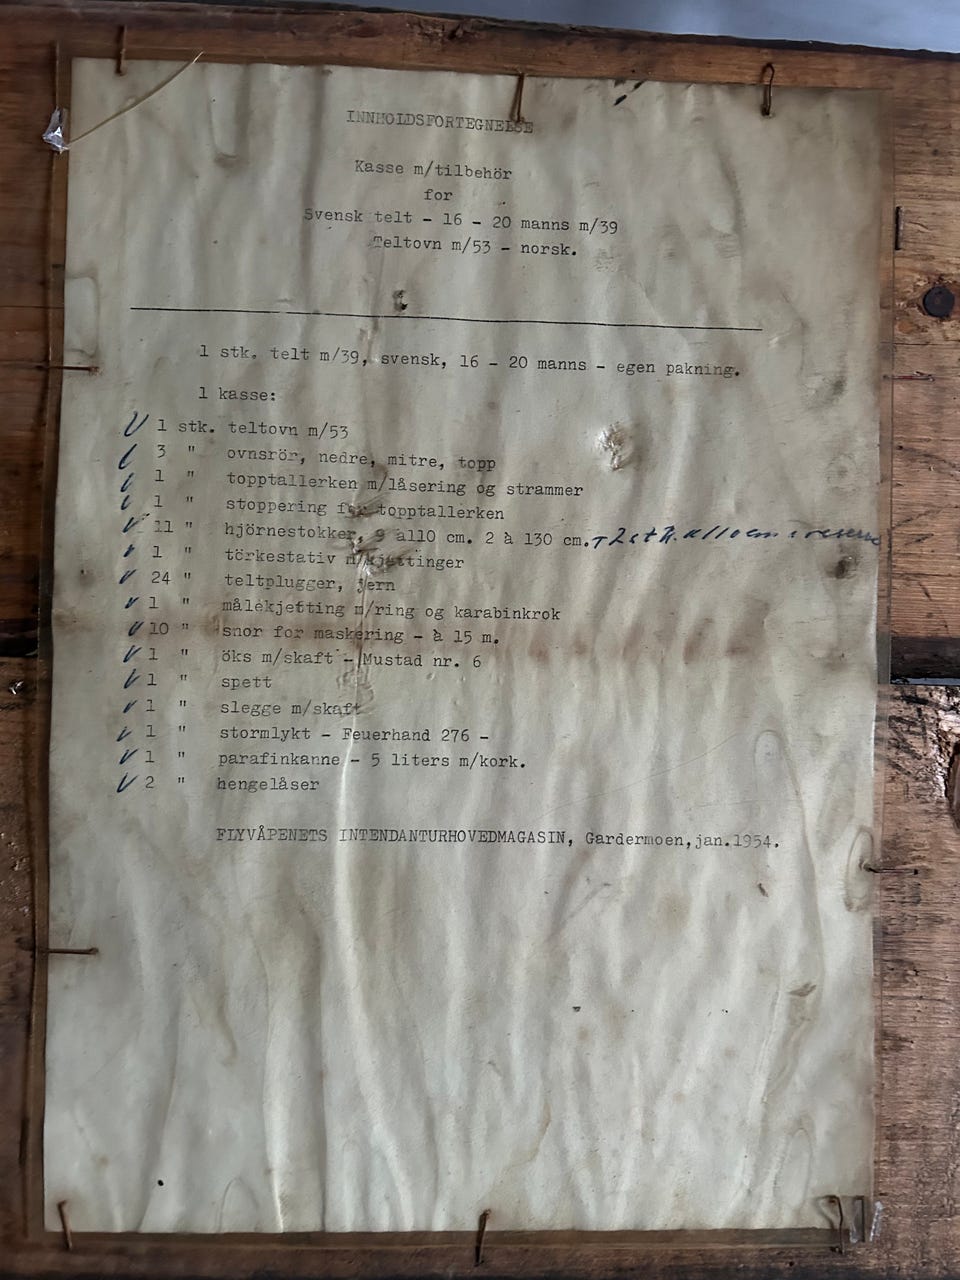 INNHOLDSFORTEGNELSE
Kasse m/tilbehör
for
Svensk telt - 16 - 20 manns m/39
Teltovn m/53 - norsk.
1 stk. telt m/39, svensk, 16 - 20 manns - egen pakning.
1 kasse:
1 stk. teltovn m/53
3 " ovnsrör, nedre, mitre, topp
1 " topptallerken m/låsering og strammer
1 " stoppering for topptallerken
11 " hjörnestokker, 9 à110 cm. 2 à 130 cm. + 2 stk. à 110 cm i reserve
1 " törkestativ m/kjettinger
24 " teltplugger, jern
1 " målekjetting m/ring og karabinkrok
10 " snor for maskering - à 15 m.
1 " öks m/skaft - Mustad nr. 6
1 " spett
1 " slegge m/skaft
1 " stormlykt - Feuerhand 276 -
1 " parafinkanne - 5 liters m/kork.
2 " hengelåser
FLYVÅPENETS INTENDANTURHOVEDMAGASIN, Gardermoen,jan.1954.